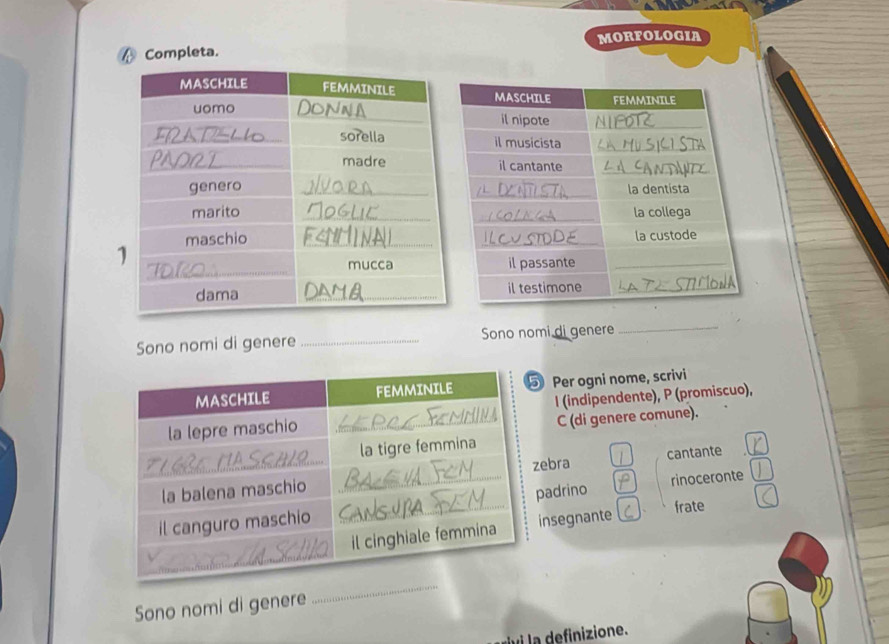 MORFOLOGIA
Completa.
MASCHILE FEMMINILE
uomo DONNA
FRATELLO sorella
PADRI madre
genero NUORA
marito MOGLIE
maschio FEMMINA
TORO mucca
dama DAMA
Sono nomi di genere
MASCHILE FEMMINILE
il nipote NIPOTE
il musicista LA MUSICISTA
il cantante LA CANTANTE
IL DENTISTA la dentista
COLLEGA la collega
IL CUSTODE la custode
il passante
il testimone LA TESTIMONA
Sono nomi di genere
MASCHILE FEMMINILE
la lepre maschio LEPRE FEMMINA
TIGRE MASCHIO la tigre femmina
la balena maschio BALENA FEM
il canguro maschio CANGURA FEM
MASCHIO il cinghiale femmina
Sono nomi di genere
5 Per ogni nome, scrivi
I (indipendente), P (promiscuo),
C (di genere comune).
zebra I cantante
padrino P rinoceronte I
insegnante C frate C
la definizione.
1